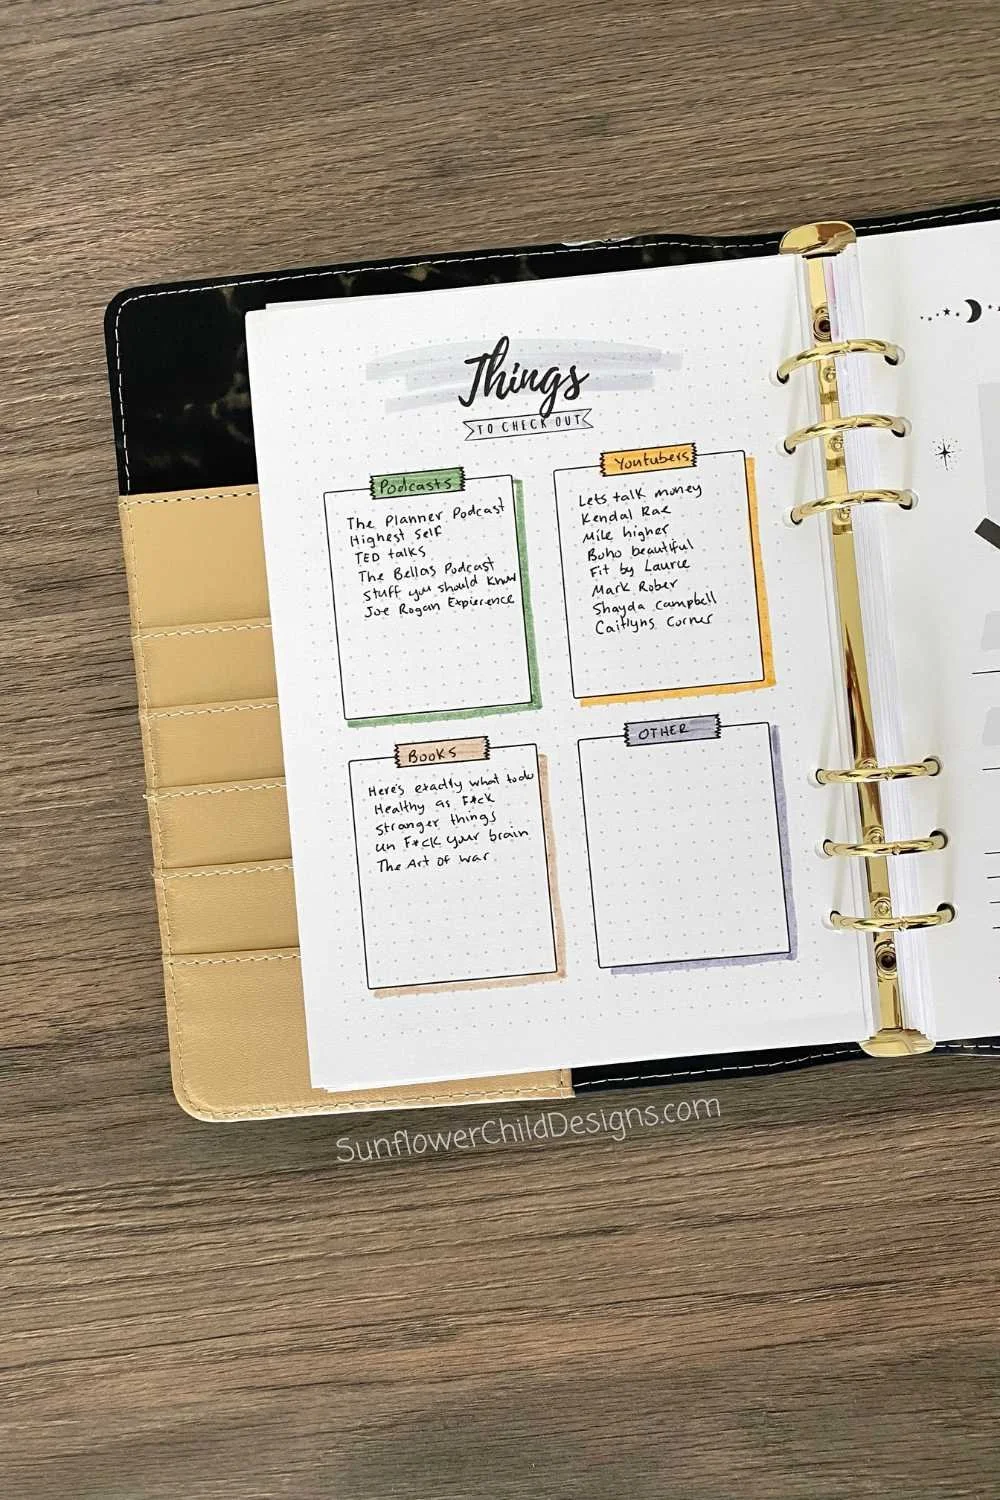 Things
TO CHECK OUT
Podcasts
The Planner Podcast
Highest self
TED talks
The Bellas Podcast
Stuff you should know
Joe Rogan Expierence
Youtubers
Lets talk money
Kendal Rae
Mile higher
Boho beautiful
Fit by Laurie
Mark Rober
Shayda campbell
Caitlyns Corner
Books
Here's exactly what todo
Healthy as F*ck
Stranger things
un F*ck your brain
The Art of war
OTHER
SunflowerChildDesigns.com